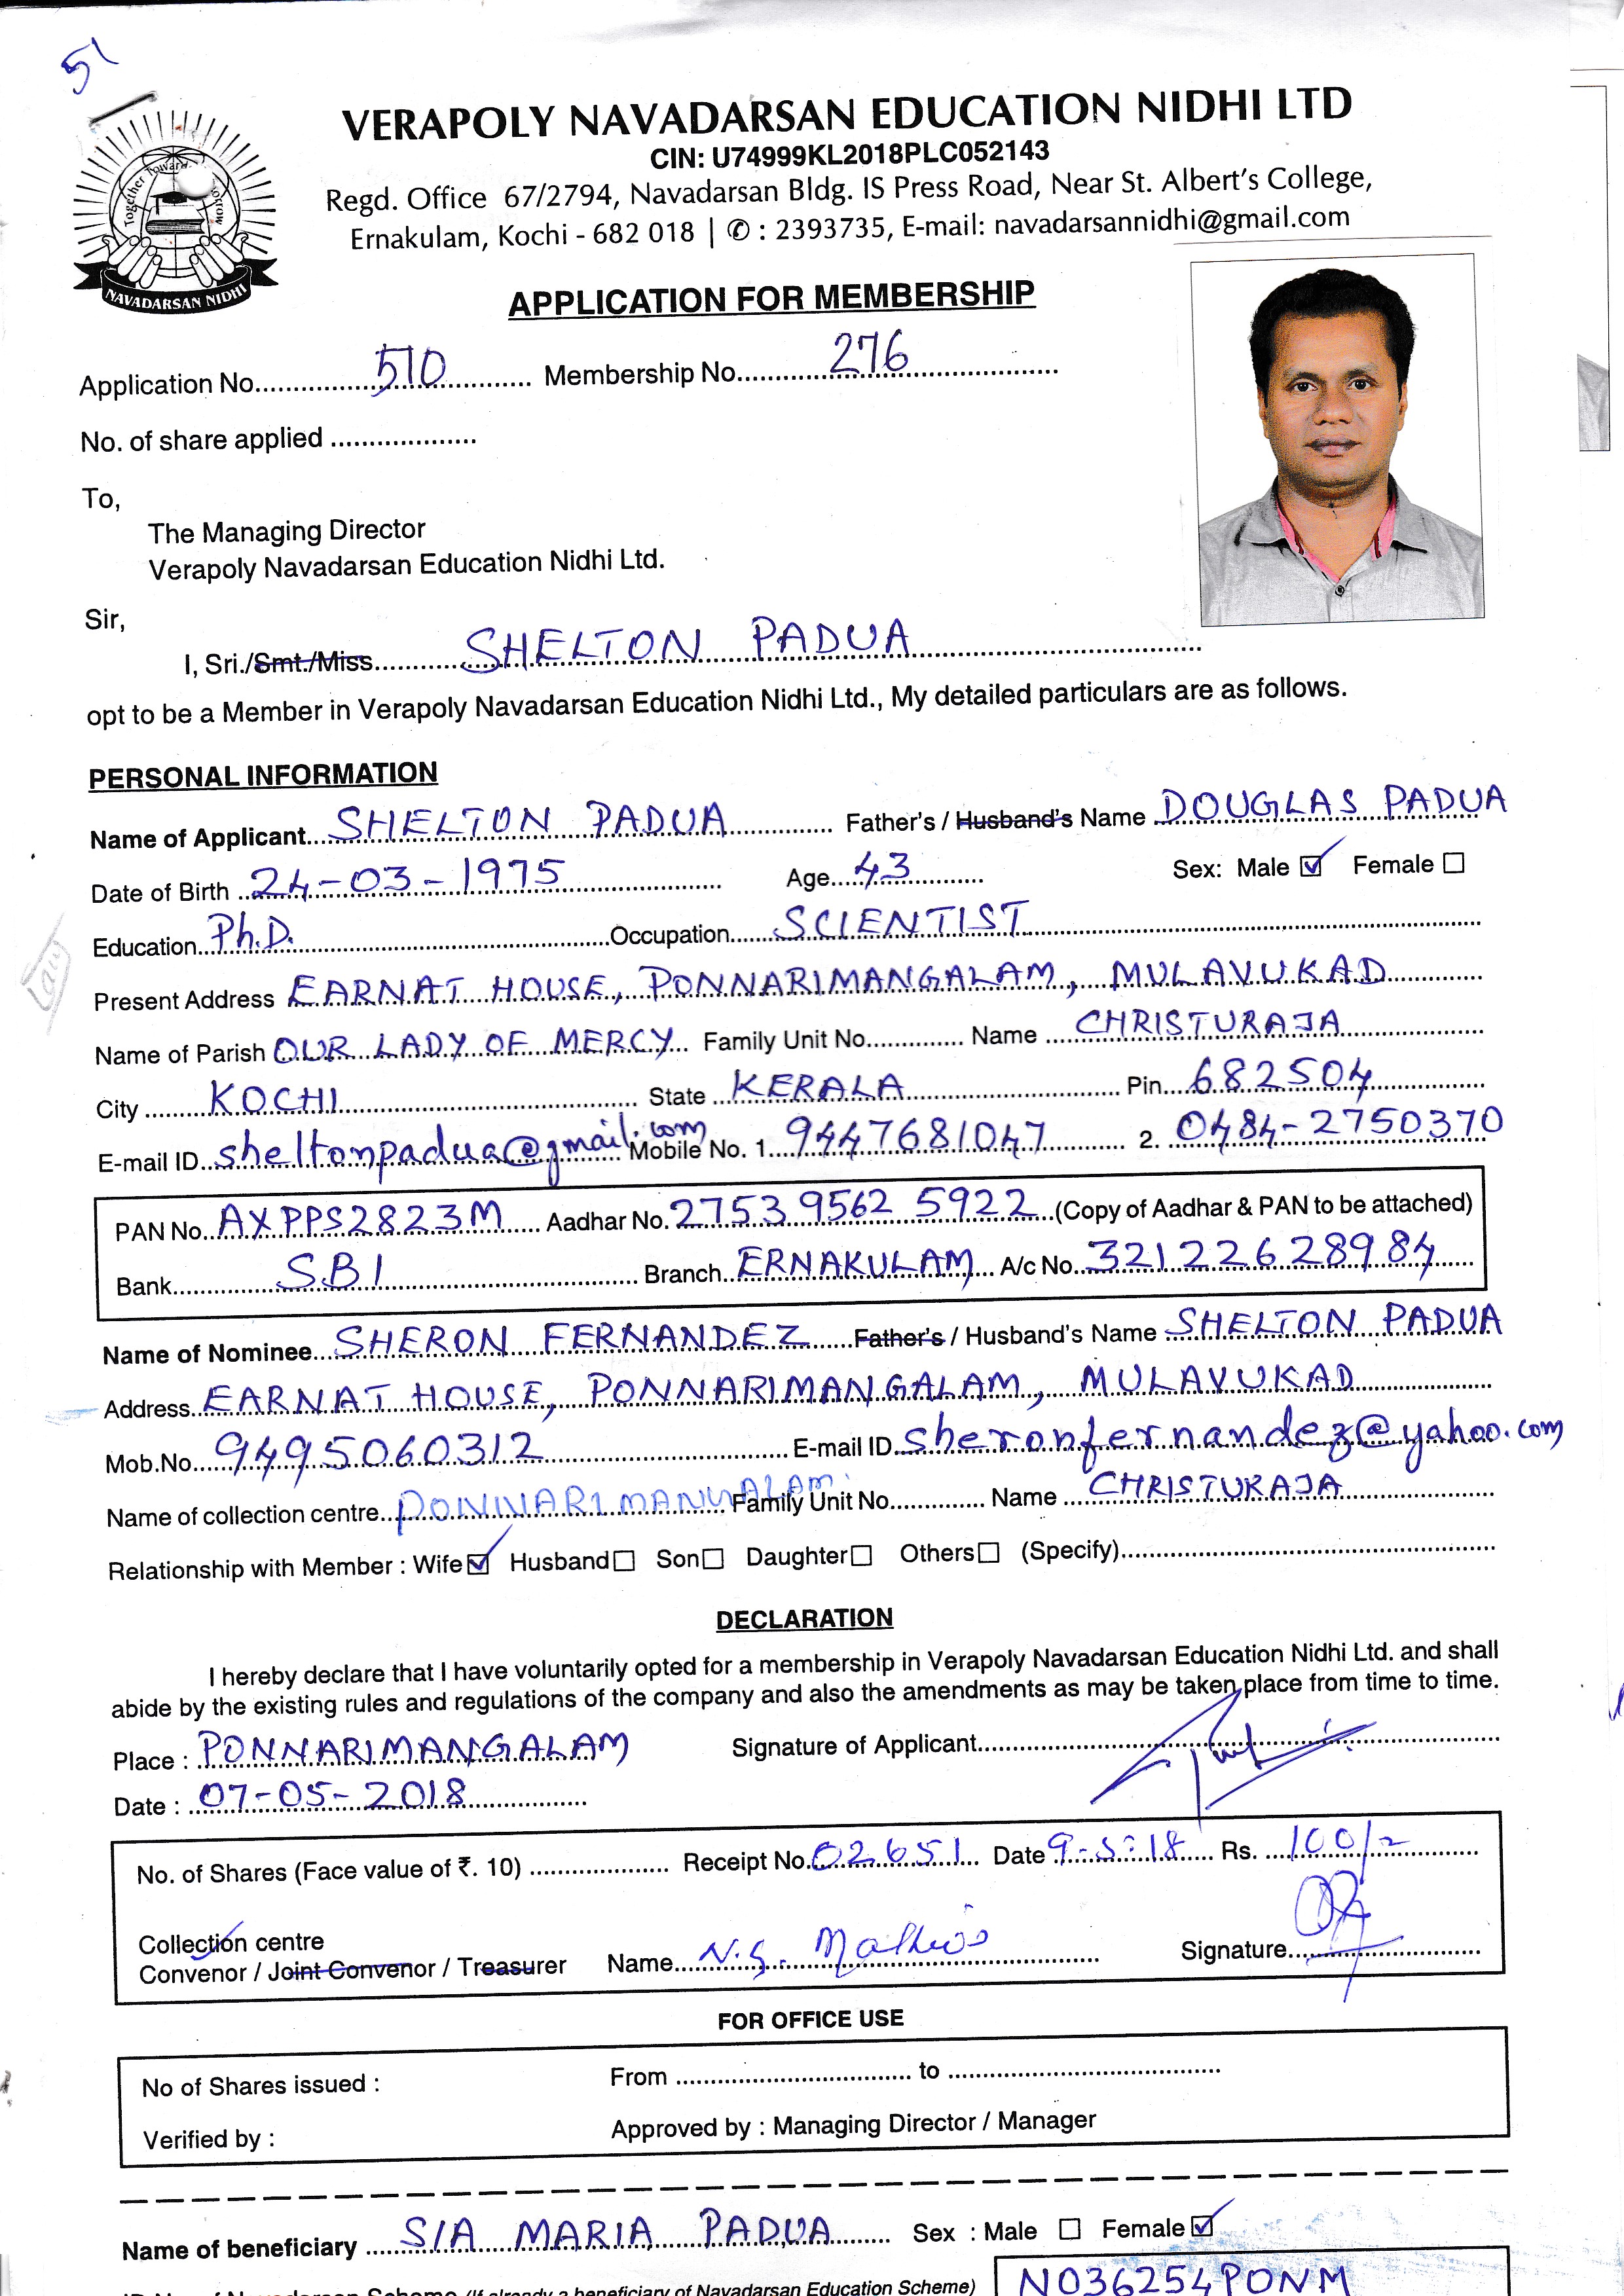 51
VERAPOLY NAVADARSAN EDUCATION NIDHI LTD
CIN: U74999KL2018PLC052143
Regd. Office 67/2794, Navadarsan Bldg. IS Press Road, Near St. Albert's College,
Ernakulam, Kochi - 682 018 | ✆ : 2393735, E-mail: navadarsannidhi@gmail.com
Together Towards Tomorrow
NAVADARSAN NIDHI
APPLICATION FOR MEMBERSHIP
Application No. 510 Membership No. 276
No. of share applied
To,
The Managing Director
Verapoly Navadarsan Education Nidhi Ltd.
Sir,
I, Sri./Smt./Miss. SHELTON PADUA
opt to be a Member in Verapoly Navadarsan Education Nidhi Ltd., My detailed particulars are as follows.
PERSONAL INFORMATION
Name of Applicant SHELTON PADUA Father's / Husband's Name DOUGLAS PADUA
Date of Birth 24-03-1975 Age 43 Sex: Male ☑ Female ☐
Education Ph.D. Occupation SCIENTIST
Present Address EARNAT HOUSE, PONNARIMANGALAM, MULAVUKAD
Name of Parish OUR LADY OF MERCY Family Unit No. Name CHRISTURAJA
City KOCHI State KERALA Pin 682504
E-mail ID sheltonpadua@gmail.com Mobile No. 1. 9447681047 2. 0484-2750370
PAN No. AXPPS2823M Aadhar No. 2753 9562 5922 (Copy of Aadhar & PAN to be attached)
Bank SBI Branch ERNAKULAM A/c No. 32122628984
Name of Nominee SHERON FERNANDEZ Father's / Husband's Name SHELTON PADUA
Address EARNAT HOUSE, PONNARIMANGALAM, MULAVUKAD
Mob.No. 9495060312 E-mail ID sheronfernandez@yahoo.com
Name of collection centre PONNARIMANGALAM Family Unit No. Name CHRISTURAJA
Relationship with Member : Wife ☑ Husband ☐ Son ☐ Daughter ☐ Others ☐ (Specify)
DECLARATION
I hereby declare that I have voluntarily opted for a membership in Verapoly Navadarsan Education Nidhi Ltd. and shall
abide by the existing rules and regulations of the company and also the amendments as may be taken place from time to time.
Place : PONNARIMANGALAM Signature of Applicant
Date : 07-05-2018
No. of Shares (Face value of ₹. 10) Receipt No. 02651 Date 9-5-18 Rs. 100/-
Collection centre
Convenor / Joint Convenor / Treasurer Name N.G. Mathews Signature
FOR OFFICE USE
No of Shares issued : From to
Verified by : Approved by : Managing Director / Manager
Name of beneficiary SIA MARIA PADUA Sex : Male ☐ Female ☑
(If already a beneficiary of Navadarsan Education Scheme) N036254PONM